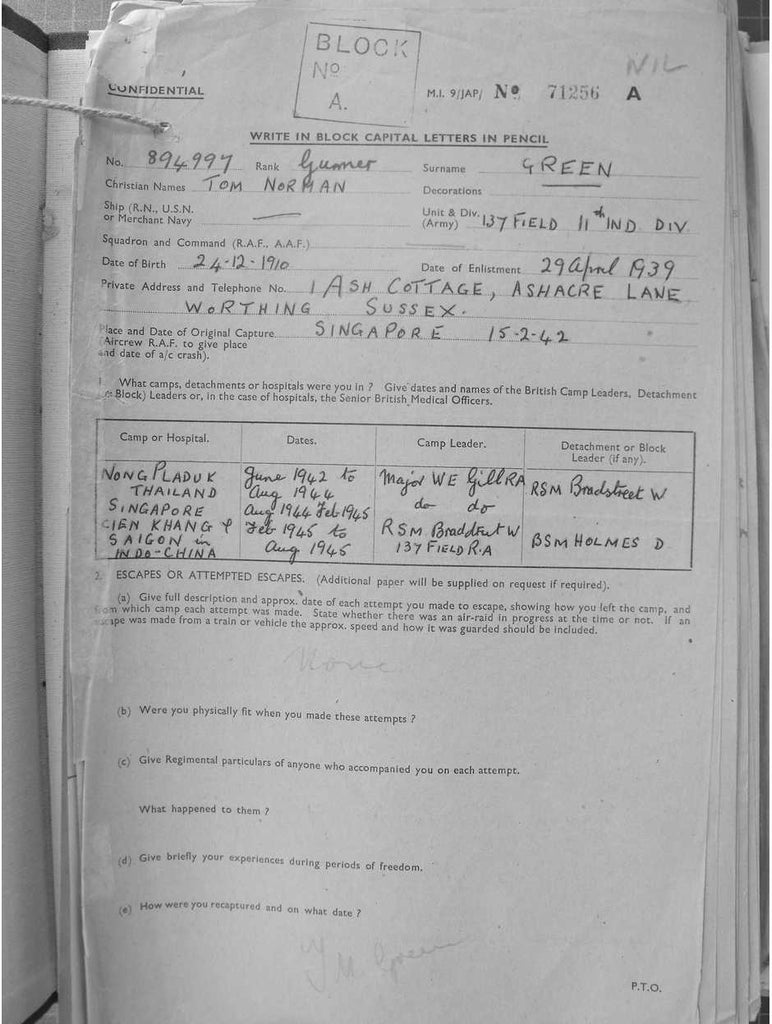 BLOCK
Nº
A.
NIL
CONFIDENTIAL
M.I. 9/JAP/ Nº 71256 A
WRITE IN BLOCK CAPITAL LETTERS IN PENCIL
No. 894997 Rank Gunner Surname GREEN
Christian Names TOM NORMAN Decorations
Ship (R.N., U.S.N. or Merchant Navy
Unit & Div. (Army) 137 FIELD 11th IND DIV.
Squadron and Command (R.A.F., A.A.F.)
Date of Birth 24-12-1910 Date of Enlistment 29 April 1939
Private Address and Telephone No. 1 ASH COTTAGE, ASHACRE LANE
WORTHING SUSSEX.
Place and Date of Original Capture SINGAPORE 15-2-42
(Aircrew R.A.F. to give place
and date of a/c crash).
1. What camps, detachments or hospitals were you in ? Give dates and names of the British Camp Leaders, Detachment
(or Block) Leaders or, in the case of hospitals, the Senior British Medical Officers.
Camp or Hospital. Dates. Camp Leader. Detachment or Block
Leader (if any).
NONG PLADUK June 1942 to Major WE Gill RA RSM Bradstreet W
THAILAND Aug 1944 do do
SINGAPORE Aug 1944 Feb 1945
KHANG & Feb 1945 to RSM W BSM HOLMES D
SAIGON in Aug 1945 137 FIELD R.A
INDO-CHINA
2. ESCAPES OR ATTEMPTED ESCAPES. (Additional paper will be supplied on request if required).
(a) Give full description and approx. date of each attempt you made to escape, showing how you left the camp, and
from which camp each attempt was made. State whether there was an air-raid in progress at the time or not. If an
escape was made from a train or vehicle the approx. speed and how it was guarded should be included.
None
(b) Were you physically fit when you made these attempts ?
(c) Give Regimental particulars of anyone who accompanied you on each attempt.
What happened to them ?
(d) Give briefly your experiences during periods of freedom.
(e) How were you recaptured and on what date ?
Green
P.T.O.